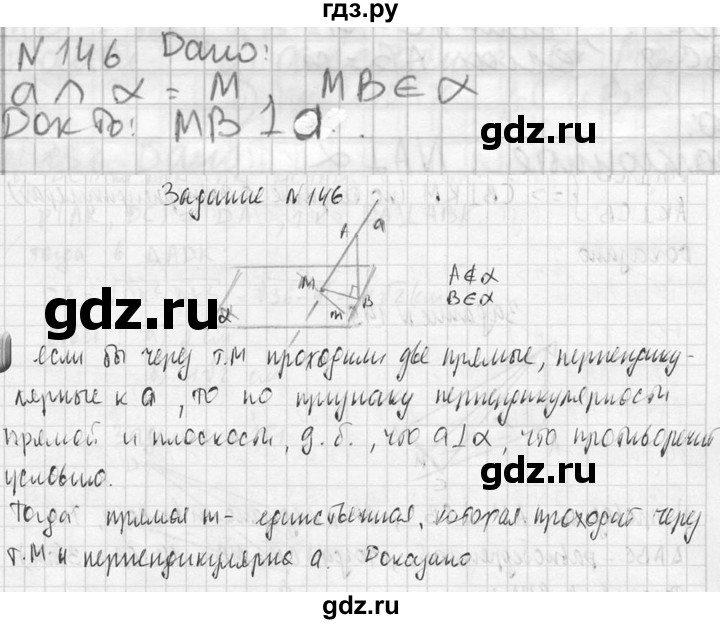 гдз.ру
N 146 Дано:
a ∩ α = M, MB ∈ α
Док ть: MB ⊥ a.
gdz.ru
Задание N 146
A a
M
B
α m
A ∉ α
B ∈ α
gdz.ru
gdz.ru
если бы через т.М проходили две прямые, перпендику-
лярные к a, то по признаку перпендикулярности
прямой и плоскости, д.б., что a⊥α, что противоречит
условию.
Тогда прямая m - единственная, которая проходит через
т.М и перпендикулярна a. Доказано
gdz.ru
gdz.ru